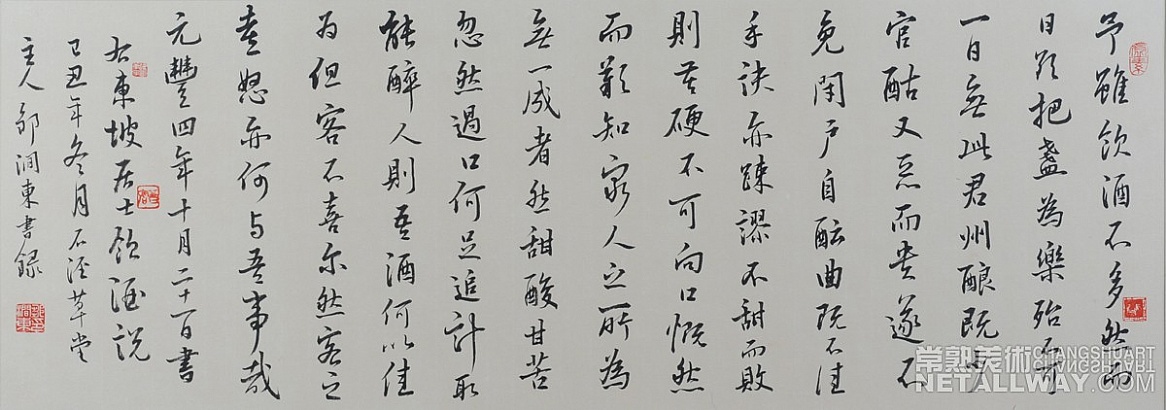 予雖飲酒不多然而
日欲把盞為樂殆不可
一日無此君州酿既少
官酤又惡而貴遂不
免閉戶自醖曲既不佳
手訣亦踈謬不甜而敗
則苦硬不可向口慨然
而歎知窮人之所為
無一成者然甜酸甘苦
忽然過口何足追計取
能醉人則吾酒何以佳
為但客不喜尔然客之
喜怒亦何与吾事哉
元豐四年十月二十一日書
右東坡居士飲酒說
己丑年冬月石涇草堂
主人邹澗東書録
常熟美術 CHANGSHUART
NETALLWAY.COM